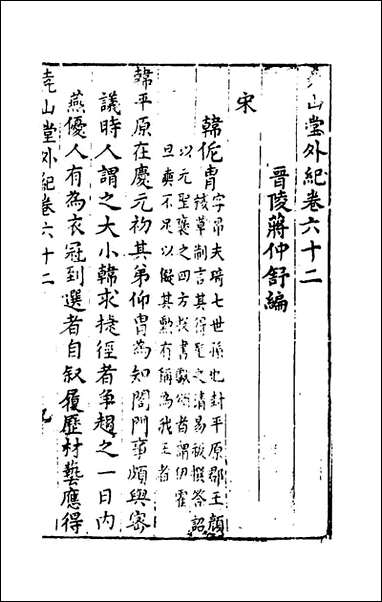 堯山堂外紀卷六十二
晉陵蔣仲舒編
宋
韓侂胄
字節夫琦七世孫也封平原郡王顏
棫草制言其得聖之清易祓撰答詔
以元聖褒之四方投書獻頌者謂伊霍
旦奭不足以儗其勳有稱為我王者
韓平原在慶元初其弟仰胄為知閤門事頗與密
議時人謂之大小韓求捷徑者爭趨之一日內
燕優人有為衣冠到選者自叙履歷材藝應得
堯山堂外紀卷六十二